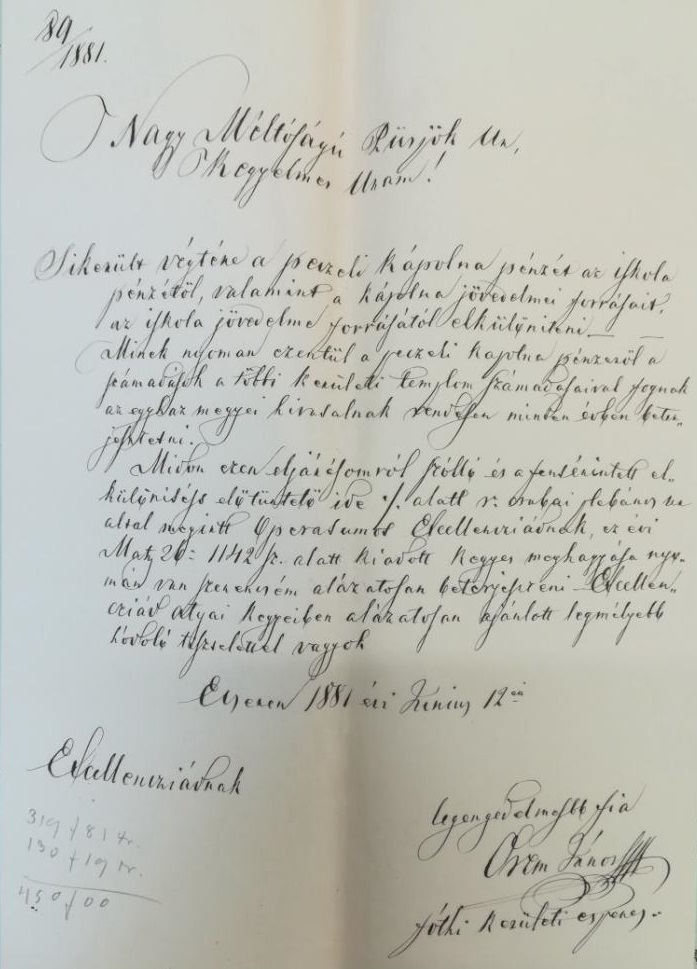 89
1881.
Nagy Méltóságú Püspök Ur,
Kegyelmes Uram!
Sikerült végtére a peczeli kápolna pénzét az iskola
pénzétöl, valamint a kápolna jövedelmei forrásait,
az iskola jövedelme forrásától elkülöniteni —
Minek nyomán ezentúl a peczeli kápolna pénzeröl a
számadások a többi kerületi templom számadásaival fognak
az egyház megyei hivatalnak rendesen minden évben beter-
jesztetni.
Midön ezen eljárásomról szólló és a fensérintett el-
különitést elötüntetö ide ·/. alatt csabai plebános
által megirott Operatumot Excellencziádnak, ez évi
1142 sz. alatt kiadott kegyes meghagyása nyo-
mán van szerencsém alázatosan beterjeszteni Excellen-
cziád atyai kegyeiben alázatosan ajánlott legmélyebb
hódoló tisztelettel vagyok
1881 évi Június 12én
Excellencziádnak
319 f 81 kr.
130 f 19 kr.
450 f 00
legengedelmesebb fia
János
fóthi kerületi esperes